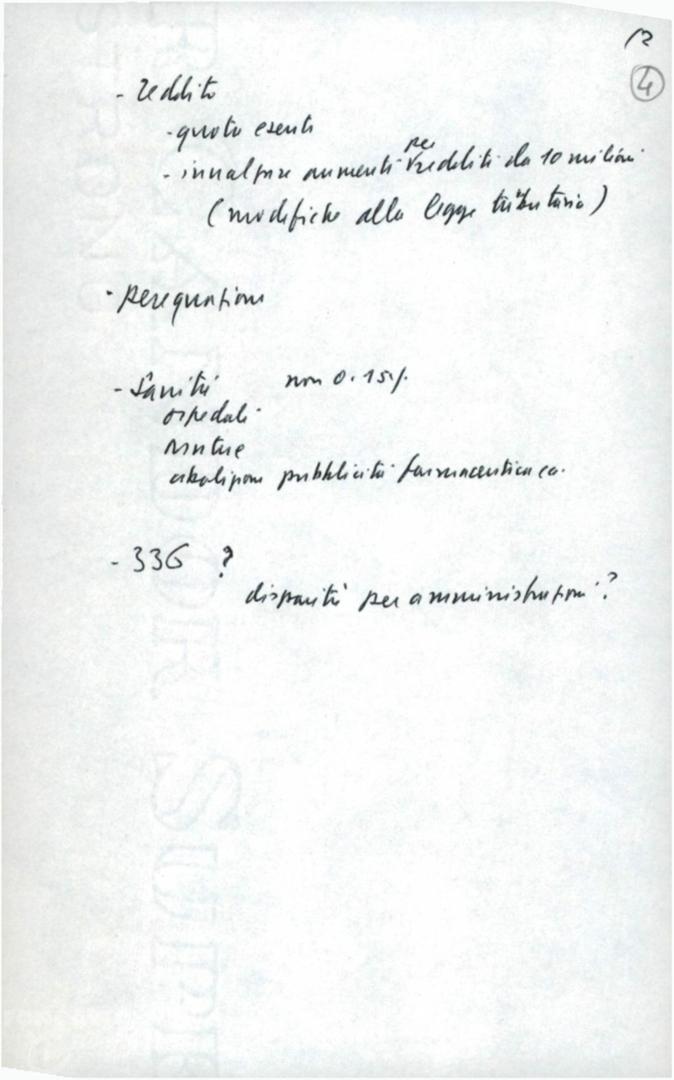 12
4
- reddito
- quote esenti
- innalzare aumenti per redditi da 10 milioni
(modifiche alla legge tributaria)
- perequazione
- Sanità non 0.15%
ospedali
mutue
abolizione pubblicità farmaceutica
- 336 ?
disparità per amministrazioni?